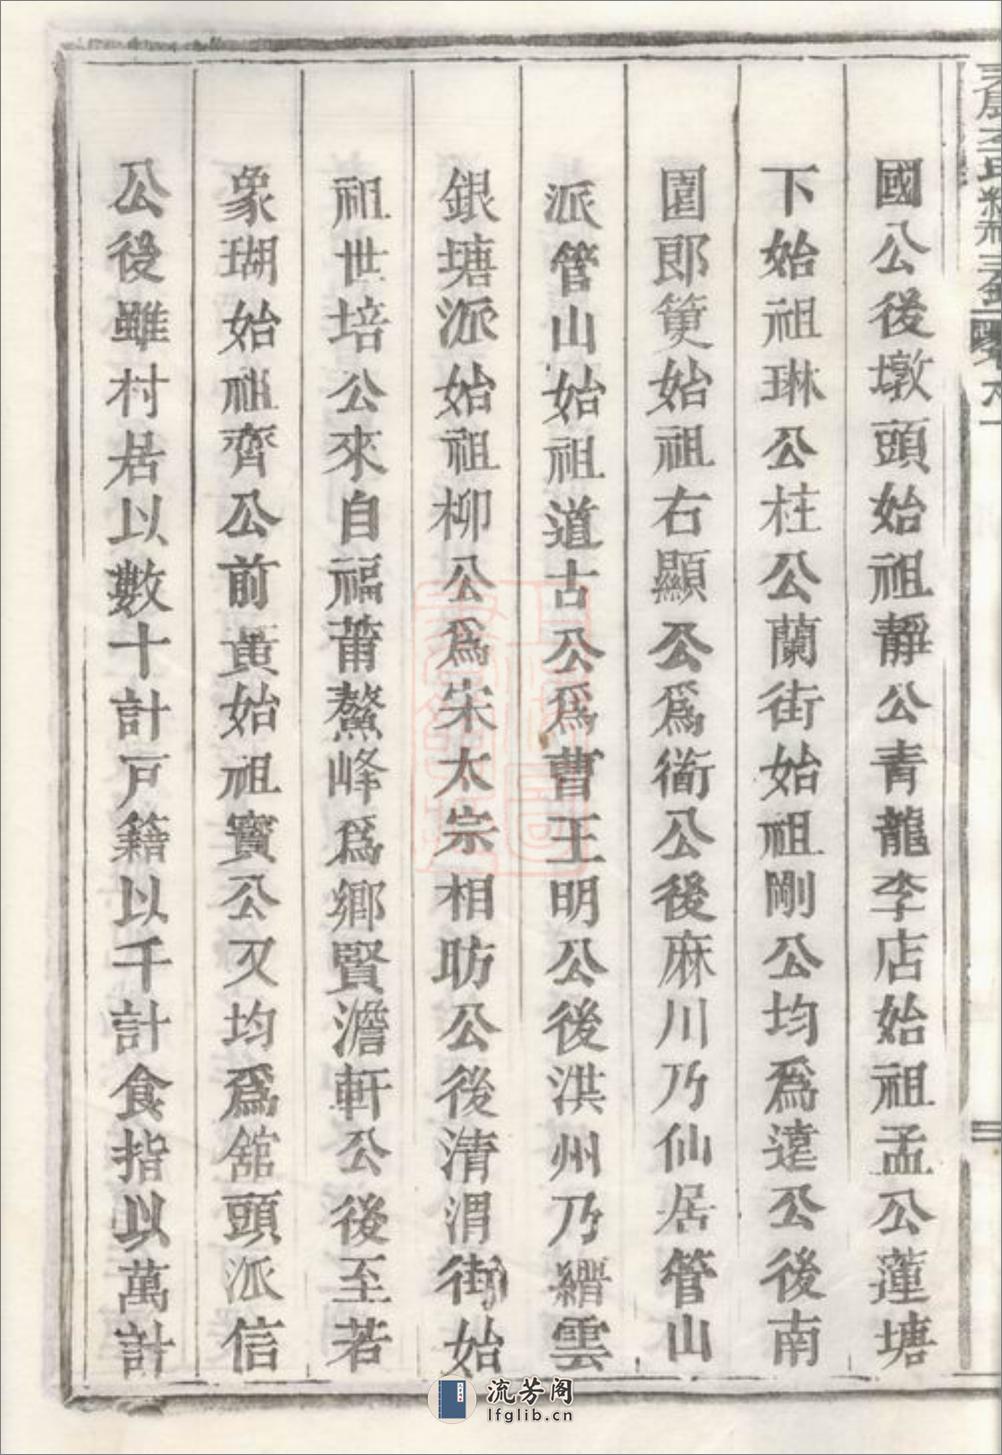 國公後墩頭始祖靜公青龍李店始祖孟公蓮塘
下始祖琳公柱公蘭街始祖剛公均爲遠公後南
園郎䉵始祖右顯公爲衝公後麻川乃仙居管山
派管山始祖道古公爲曹王明公後洪州乃縉雲
銀塘派始祖柳公爲宋太宗相昉公後清渭街始
祖世培公來自福莆鰲峰爲鄉賢澹軒公後至若
象瑚始祖齊公前黃始祖寶公又均爲舘頭派信
公後雖村居以數十計戸籍以千計食指以萬計
流芳阁
lfglib.cn